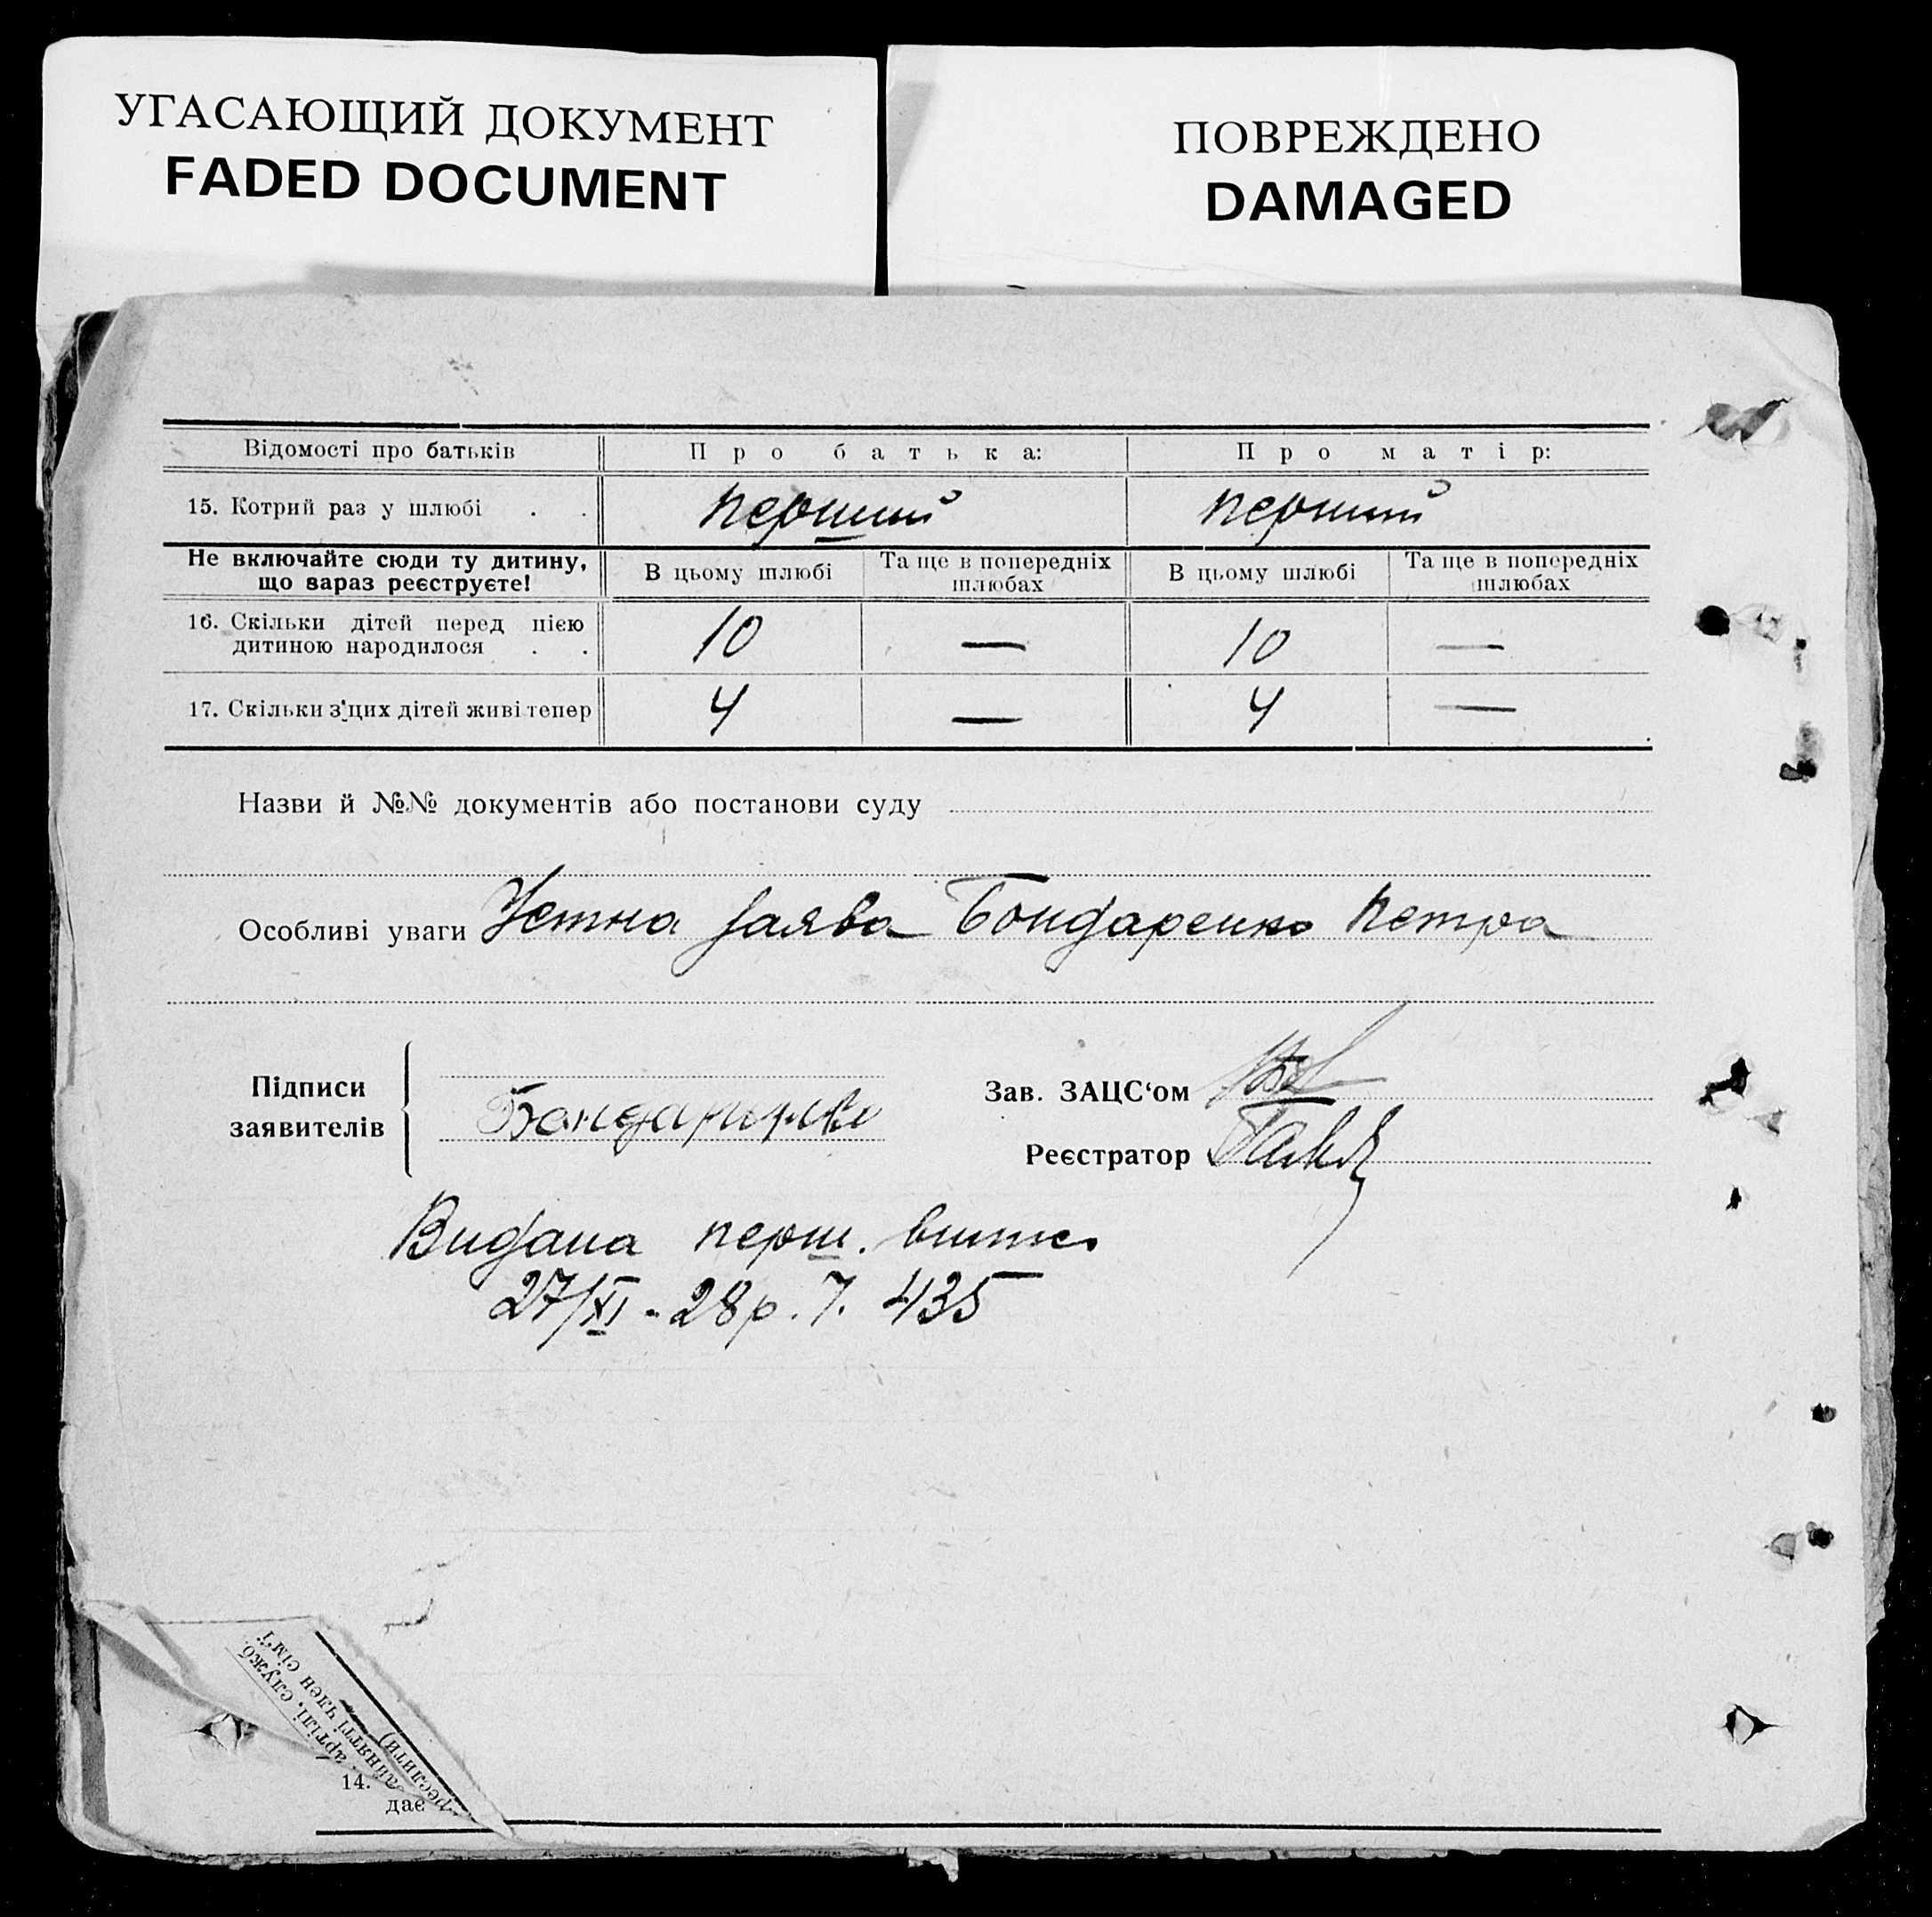 УГАСАЮЩИЙ ДОКУМЕНТ
FADED DOCUMENT
ПОВРЕЖДЕНО
DAMAGED
Відомості про батьків Про батька: Про матір:
15. Котрий раз у шлюбі . . перший перший
Не включайте сюди ту дитину, В цьому шлюбі Та ще в попередніх В цьому шлюбі Та ще в попередніх
що зараз реєструєте! шлюбах шлюбах
16. Скільки дітей перед цією 10 — 10 —
дитиною народилося . .
17. Скільки з'цих дітей живі тепер 4 — 4 —
Назви й №№ документів або постанови суду
Особливі уваги Устна заява Бондаренко Петра
Підписи
заявителів
Зав. ЗАЦС‘ом
Реєстратор
Видана перш.
27/XI - 28 р. 7. 435
член сім'ї
артілі, служб.
14.
дає